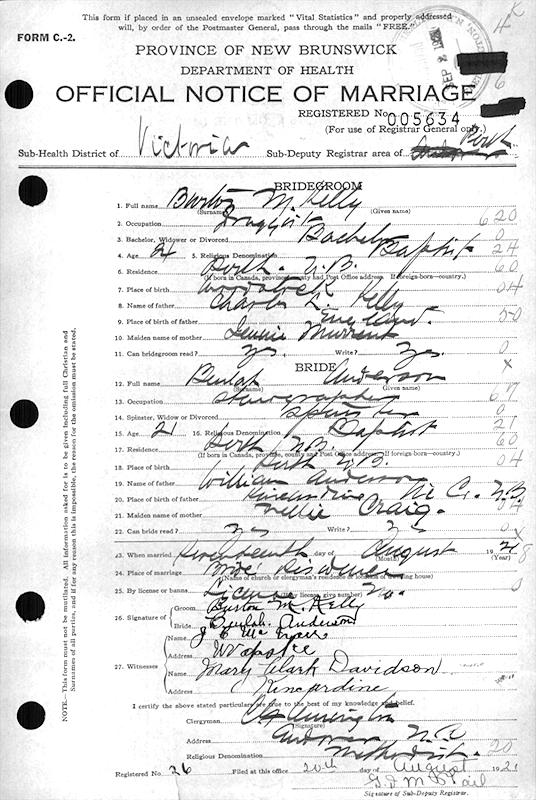 This form if placed in an unsealed envelope marked "Vital Statistics" and properly addressed
will, by order of the Postmaster General, pass through the mails "FREE."
FORM C.-2.
PROVINCE OF NEW BRUNSWICK
DEPARTMENT OF HEALTH
OFFICIAL NOTICE OF MARRIAGE
REGISTERED No. 005634
(For use of Registrar General only.)
Sub-Health District of Victoria Sub-Deputy Registrar area of Perth
BRIDEGROOM
1. Full name Burton M. Kelly
(Surname) (Given name)
2. Occupation Druggist 620
3. Bachelor, Widower or Divorced Bachelor 0
4. Age 24 5. Religious Denomination Baptist 24
6. Residence Perth N.B. 60
(If born in Canada, province, county and Post Office address. If foreign-born—country.)
7. Place of birth Woodstock 04
8. Name of father Charles L. Kelly
9. Place of father England 50
10. Maiden name of mother
11. Can bridegroom read? Yes. Write? Yes. 0
BRIDE x
12. Full name Beulah Anderson
(Surname) (Given name)
13. Occupation Stenographer
14. Spinster, Widow or Divorced Spinster 0
15. Age 21 16. Religious Denomination Baptist 21
17. Residence Perth N.B. 60
(If born in Canada, province, county and Post Office address. If foreign-born—country.)
18. Place of birth Perth N.B. 04
19. Name of father William Anderson
20. Place of birth of father Kincardine N.B.
21. Maiden name of mother Nellie Craig. 04
22. Can bride read? Yes Write? Yes
23. When married Seventeenth day of August 192
(Year)
24. Place of marriage Bride's Residence
(Name of church or clergyman's residence or location of dwelling house)
25. By license or banns License No.
(If by license, give number)
26. Signature of Groom Burton M. Kelly
Bride Beulah Anderson
27. Witnesses Name
Address Wapske
Name Mary Clark Davidson
Address Kincardine
I certify the above stated particulars are true to the best of my knowledge and belief.
Clergyman
(Signature)
Address Andover N.B.
Religious Denomination Methodist. 20
Registered No. 26 Filed at this office 20th day of August 192
Signature of Sub-Deputy Registrar.
NOTE.—This form must not be mutilated. All information asked for is to be given including full Christian and
Surnames of all parties, and if for any reason this is impossible, the reason for the omission must be stated.